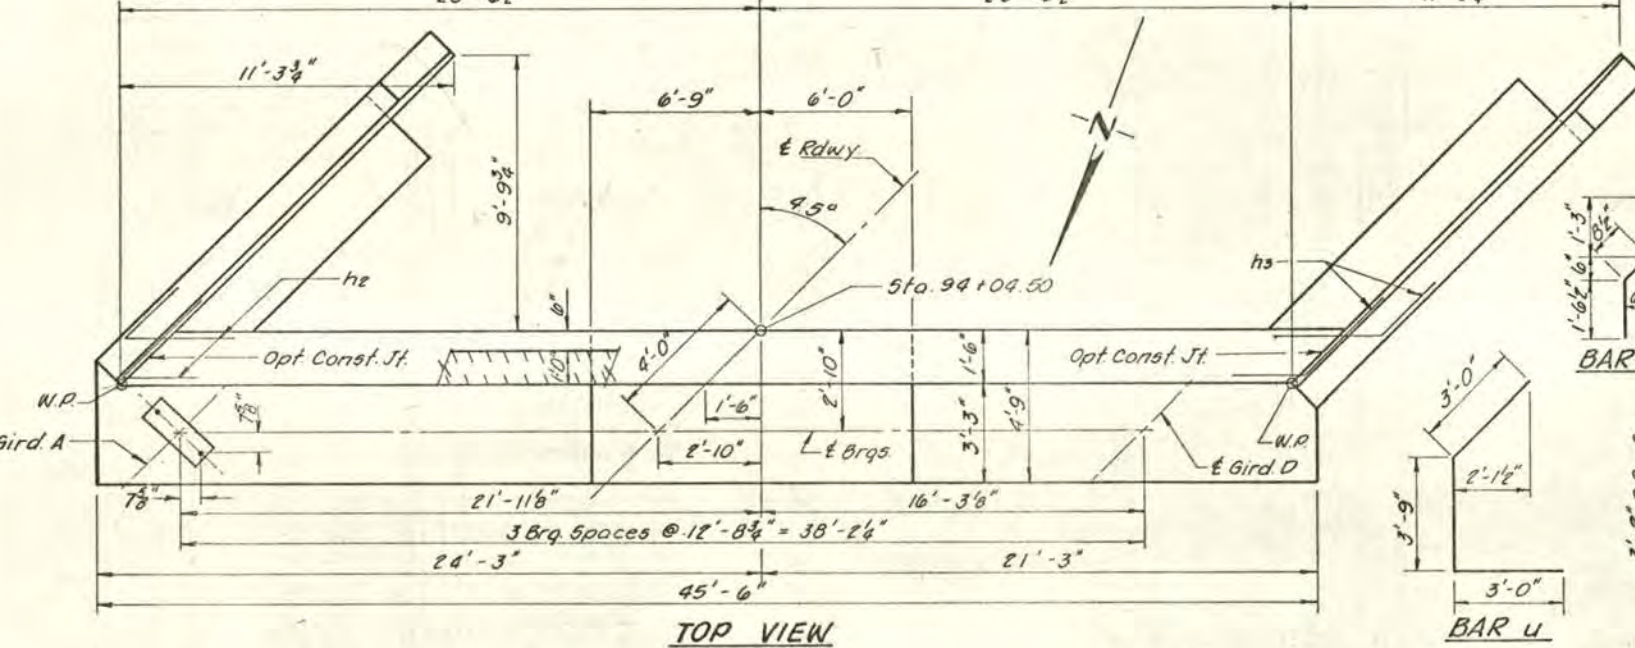 11'-3¾"
6'-9"
6'-0"
N
℄ Rdwy.
45°
9'-9¾"
h2
h3
Sta. 94+04.50
6"
4'-0"
Opt. Const. Jt.
1'-0"
2'-10"
1'-6"
Opt. Const. Jt.
W.P.
7⅝"
1'-6"
3'-3"
4'-9"
W.P.
Gird. A
2'-10"
℄ Brgs.
℄ Gird. D
7⅝"
21'-11⅛"
16'-3⅛"
3 Brg. Spaces @ 12'-8¾" = 38'-2¼"
24'-3"
21'-3"
45'-6"
TOP VIEW
1'-3"
8½"
6"
1'-6½"
BAR
3'-0"
2'-1½"
3'-9"
3'-0"
BAR u